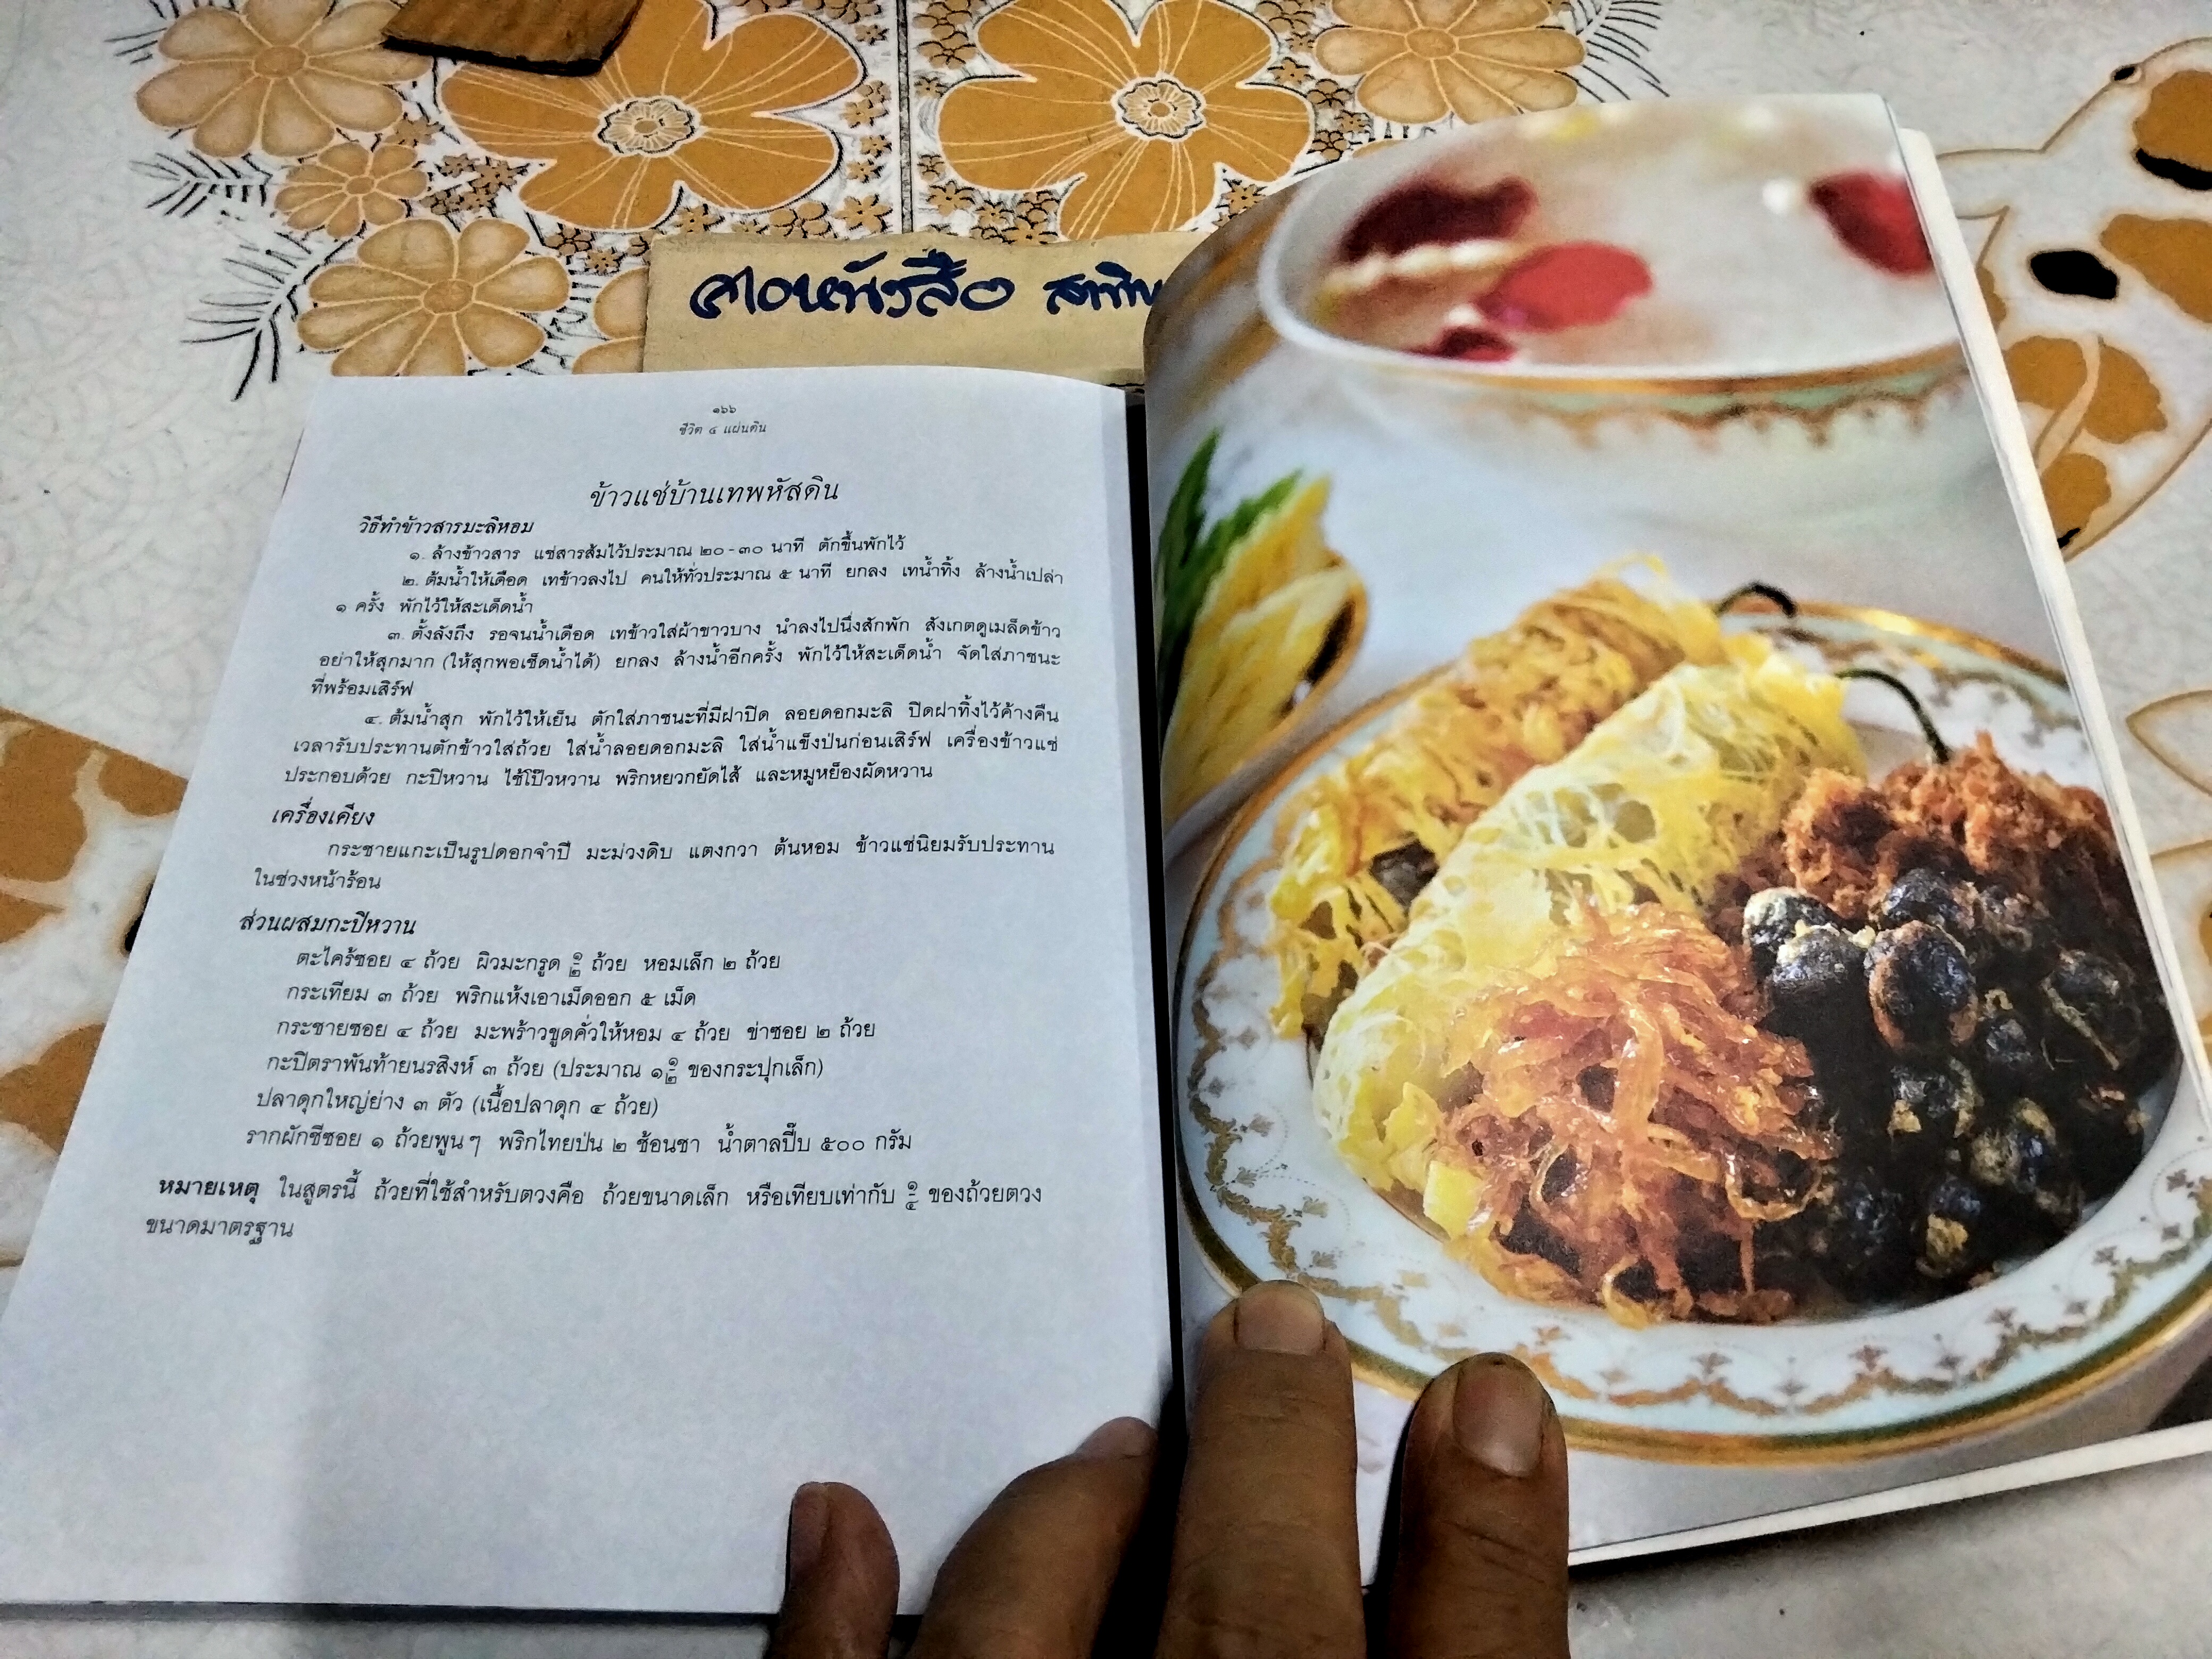 ๑๖๖
ชีวิต ๔ แผ่นดิน
ข้าวแช่บ้านเทพหัสดิน
วิธีทำข้าวสารมะลิหอม
๑. ล้างข้าวสาร แช่สารส้มไว้ประมาณ ๒๐-๓๐ นาที ตักขึ้นพักไว้
๒. ต้มน้ำให้เดือด เทข้าวลงไป คนให้ทั่วประมาณ ๕ นาที ยกลง เทน้ำทิ้ง ล้างน้ำเปล่า
๑ ครั้ง พักไว้ให้สะเด็ดน้ำ
๓. ตั้งลังถึง รอจนน้ำเดือด เทข้าวใส่ผ้าขาวบาง นำลงไปนึ่งสักพัก สังเกตดูเมล็ดข้าว
อย่าให้สุกมาก (ให้สุกพอเช็ดน้ำได้) ยกลง ล้างน้ำอีกครั้ง พักไว้ให้สะเด็ดน้ำ จัดใส่ภาชนะ
ที่พร้อมเสิร์ฟ
๔. ต้มน้ำสุก พักไว้ให้เย็น ตักใส่ภาชนะที่มีฝาปิด ลอยดอกมะลิ ปิดฝาทิ้งไว้ค้างคืน
เวลารับประทานตักข้าวใส่ถ้วย ใส่น้ำลอยดอกมะลิ ใส่น้ำแข็งป่นก่อนเสิร์ฟ เครื่องข้าวแช่
ประกอบด้วย กะปิหวาน ไช้โป๊วหวาน พริกหยวกยัดไส้ และหมูหย็องผัดหวาน
เครื่องเคียง
กระชายแกะเป็นรูปดอกจำปี มะม่วงดิบ แตงกวา ต้นหอม ข้าวแช่นิยมรับประทาน
ในช่วงหน้าร้อน
ส่วนผสมกะปิหวาน
ตะไคร้ซอย ๔ ถ้วย ผิวมะกรูด ๑/๒ ถ้วย หอมเล็ก ๒ ถ้วย
กระเทียม ๓ ถ้วย พริกแห้งเอาเม็ดออก ๕ เม็ด
กระชายซอย ๔ ถ้วย มะพร้าวขูดคั่วให้หอม ๔ ถ้วย ข่าซอย ๒ ถ้วย
กะปิตราพันท้ายนรสิงห์ ๓ ถ้วย (ประมาณ ๑ ๑/๒ ของกระปุกเล็ก)
ปลาดุกใหญ่ย่าง ๓ ตัว (เนื้อปลาดุก ๔ ถ้วย)
รากผักชีซอย ๑ ถ้วยพูนๆ พริกไทยป่น ๒ ช้อนชา น้ำตาลปี๊บ ๕๐๐ กรัม
หมายเหตุ ในสูตรนี้ ถ้วยที่ใช้สำหรับตวงคือ ถ้วยขนาดเล็ก หรือเทียบเท่ากับ ๑/๔ ของถ้วยตวง
ขนาดมาตรฐาน